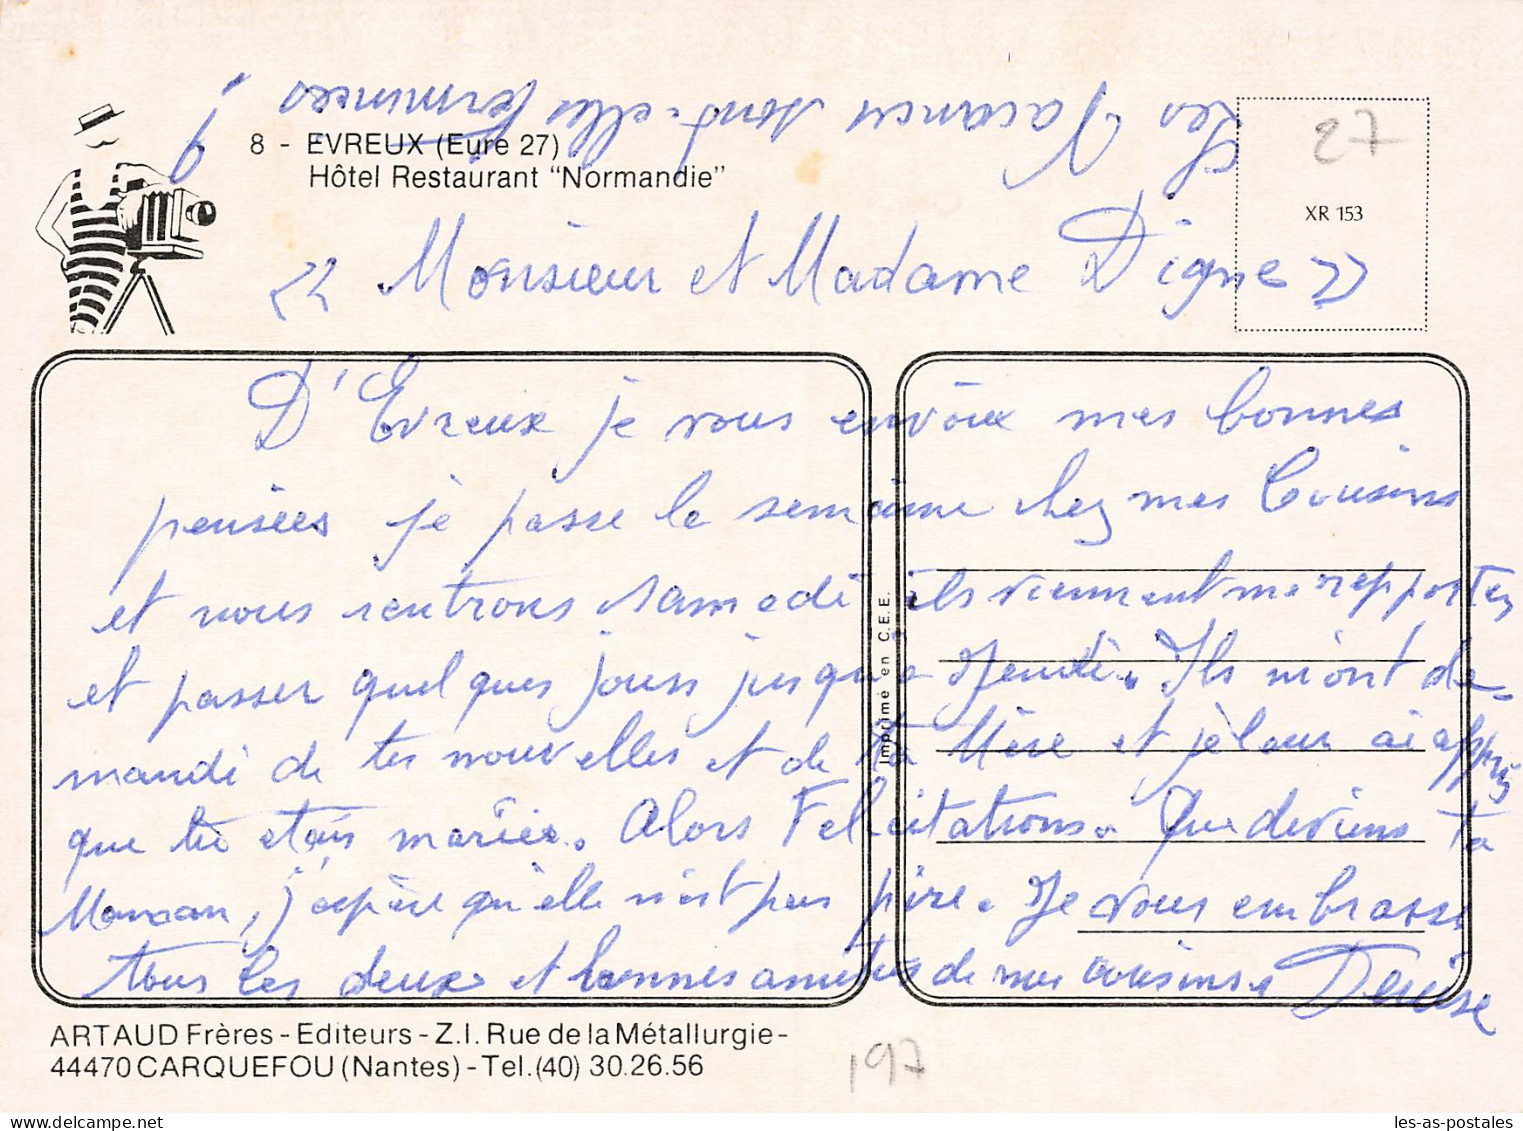 Les Vacances sont-elles terminées ?
8 - EVREUX (Eure 27)
Hôtel Restaurant "Normandie"
27
XR 153
« Monsieur et Madame Digne »
D'Evreux je vous envoie mes bonnes
pensées je passe la semaine chez mes Cousins
et nous rentrons samedi ils viennent me rapporter
et passer quelques jours jusqu'a Jeudi. Ils m'ont de-
mandé de tes nouvelles et de ta Mère et je leur ai appris
que tu étais mariée. Alors Félicitations. Que deviens ta
Maman, j'espère qu'elle n'est pas pire. Je vous embrasse
tous les deux et bonnes amitiés de mes cousins. Denise
Imprimé en C.E.E.
ARTAUD Frères - Editeurs - Z.I. Rue de la Métallurgie -
44470 CARQUEFOU (Nantes) - Tel. (40) 30.26.56
197
les-as-postales